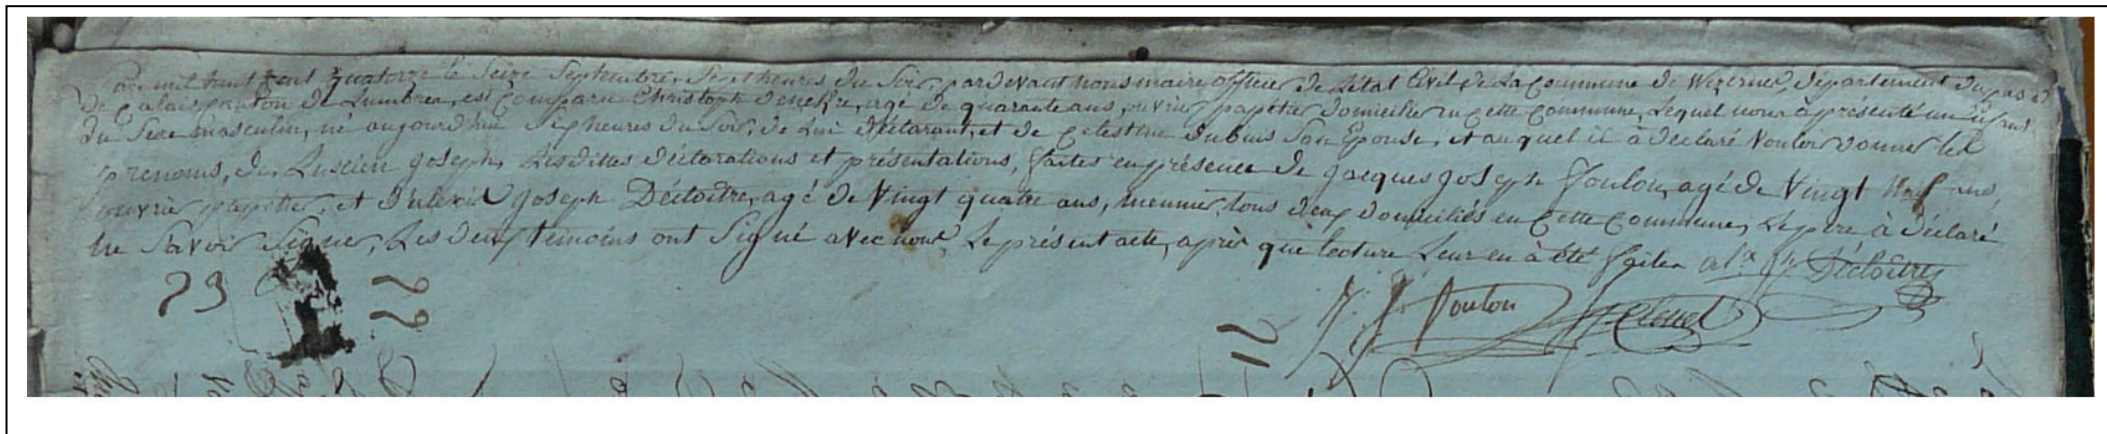 an mil huit cent quatorze le Seize Septembre, Sept heures du Soir, pardevant nous maire officier de L'état Civil de La Commune de Wizernes, département du pas
de Calais, canton de Lumbres, est Comparu Christophe denekre, agé de quarante ans, ouvrier papetier domicilié en Cette Commune, Lequel nous à présenté un Enfant
du Sexe masculin, né aujourdhui Six heures du Soir, de Lui déclarant, et de Celestine dubuis Son Epouse, et auquel il à déclaré Vouloir donner les
prenoms, de, Luscien Joseph, Lesdittes déclarations et présentations, faites en présence de Jacques Joseph Foulon, agé de Vingt Neuf ans,
ouvrier papetier, et d'alexis Joseph Décloître, agé de Vingt quatre ans, meunier, tous deux domiciliés en Cette Commune, Le père à déclaré
ne Savoir Signer, Les deux temoins ont Signé avec nous, Le présent acte, après que lecture Leur en à été faite. al.x J.h Décloître
J. J. Foulon